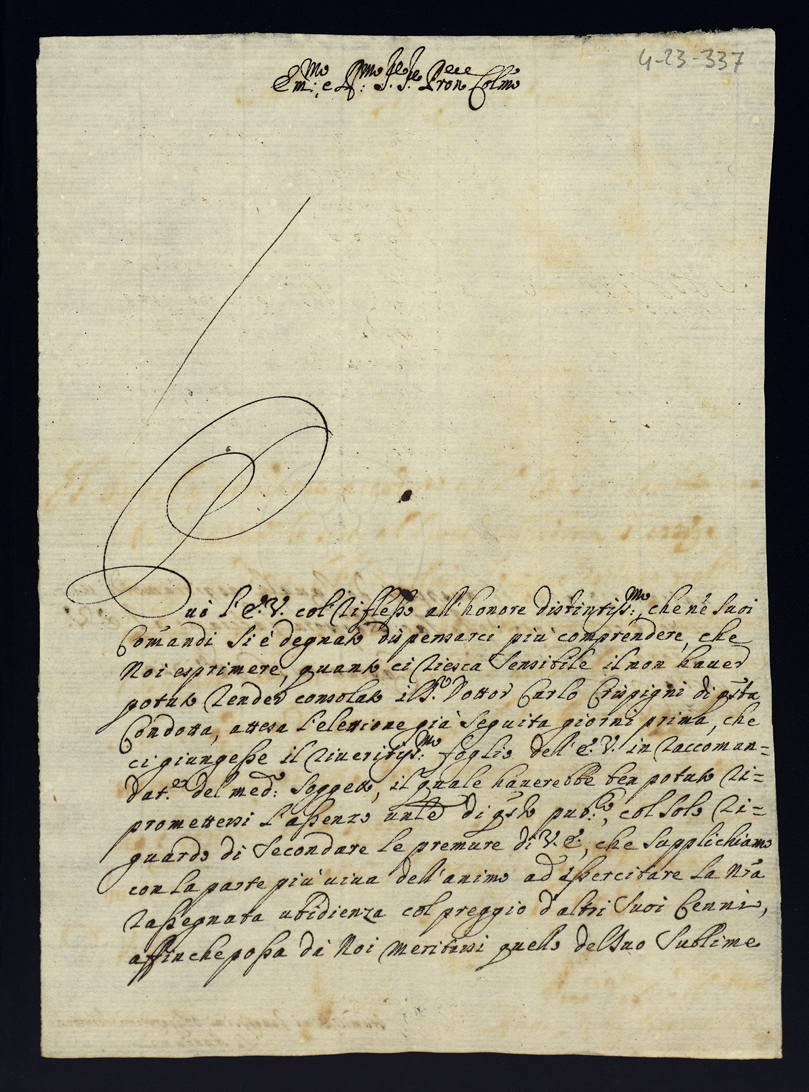 4-23-337
Em:mo e R:mo Sig.re Sig.re Pron Colmo
Può l'E.V. col riflesso all'honore distintiss:mo, che ne suoi
Comandi si è degnata dispensarci più comprendere, che
Noi esprimere, quanto ci riesca sensibile il non haver
potuto render consolato il S.r Dottor Carlo Crispigni di qsta
Condotta, attesa l'elettione già seguita giorni prima, che
ci giungesse il riveritiss:mo foglio dell'E.V. in raccoman=
dat.e del med: soggetto, il quale haverebbe ben potuto ri=
promettersi l'assenso unle di qsto pub.co, col solo ri=
guardo di secondare le premure di V.E., che supplichiamo
con la parte più viva dell'animo ad essercitare la nra
rassegnata ubidienza col preggio d'altri suoi cenni,
affinche possa da Noi meritarsi quello del suo sublime